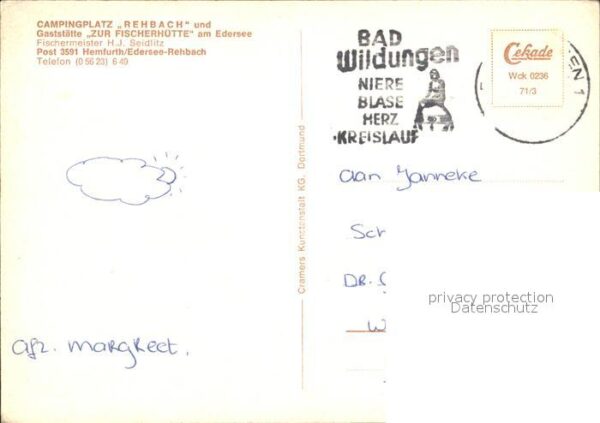 CAMPINGPLATZ „REHBACH" und
Gaststätte „ZUR FISCHERHÜTTE" am Edersee
Fischermeister H. J. Seidlitz
Post 3591 Hemfurth/Edersee-Rehbach
Telefon (0 56 23) 6 49
BAD
Wildungen
NIERE
BLASE
HERZ
KREISLAUF
EN 1
Cekade
Wck 0236
71/3
Cramers Kunstanstalt KG, Dortmund
aan Janneke
Sch
DR.
W
privacy protection
Datenschutz
afz. MARGREET.